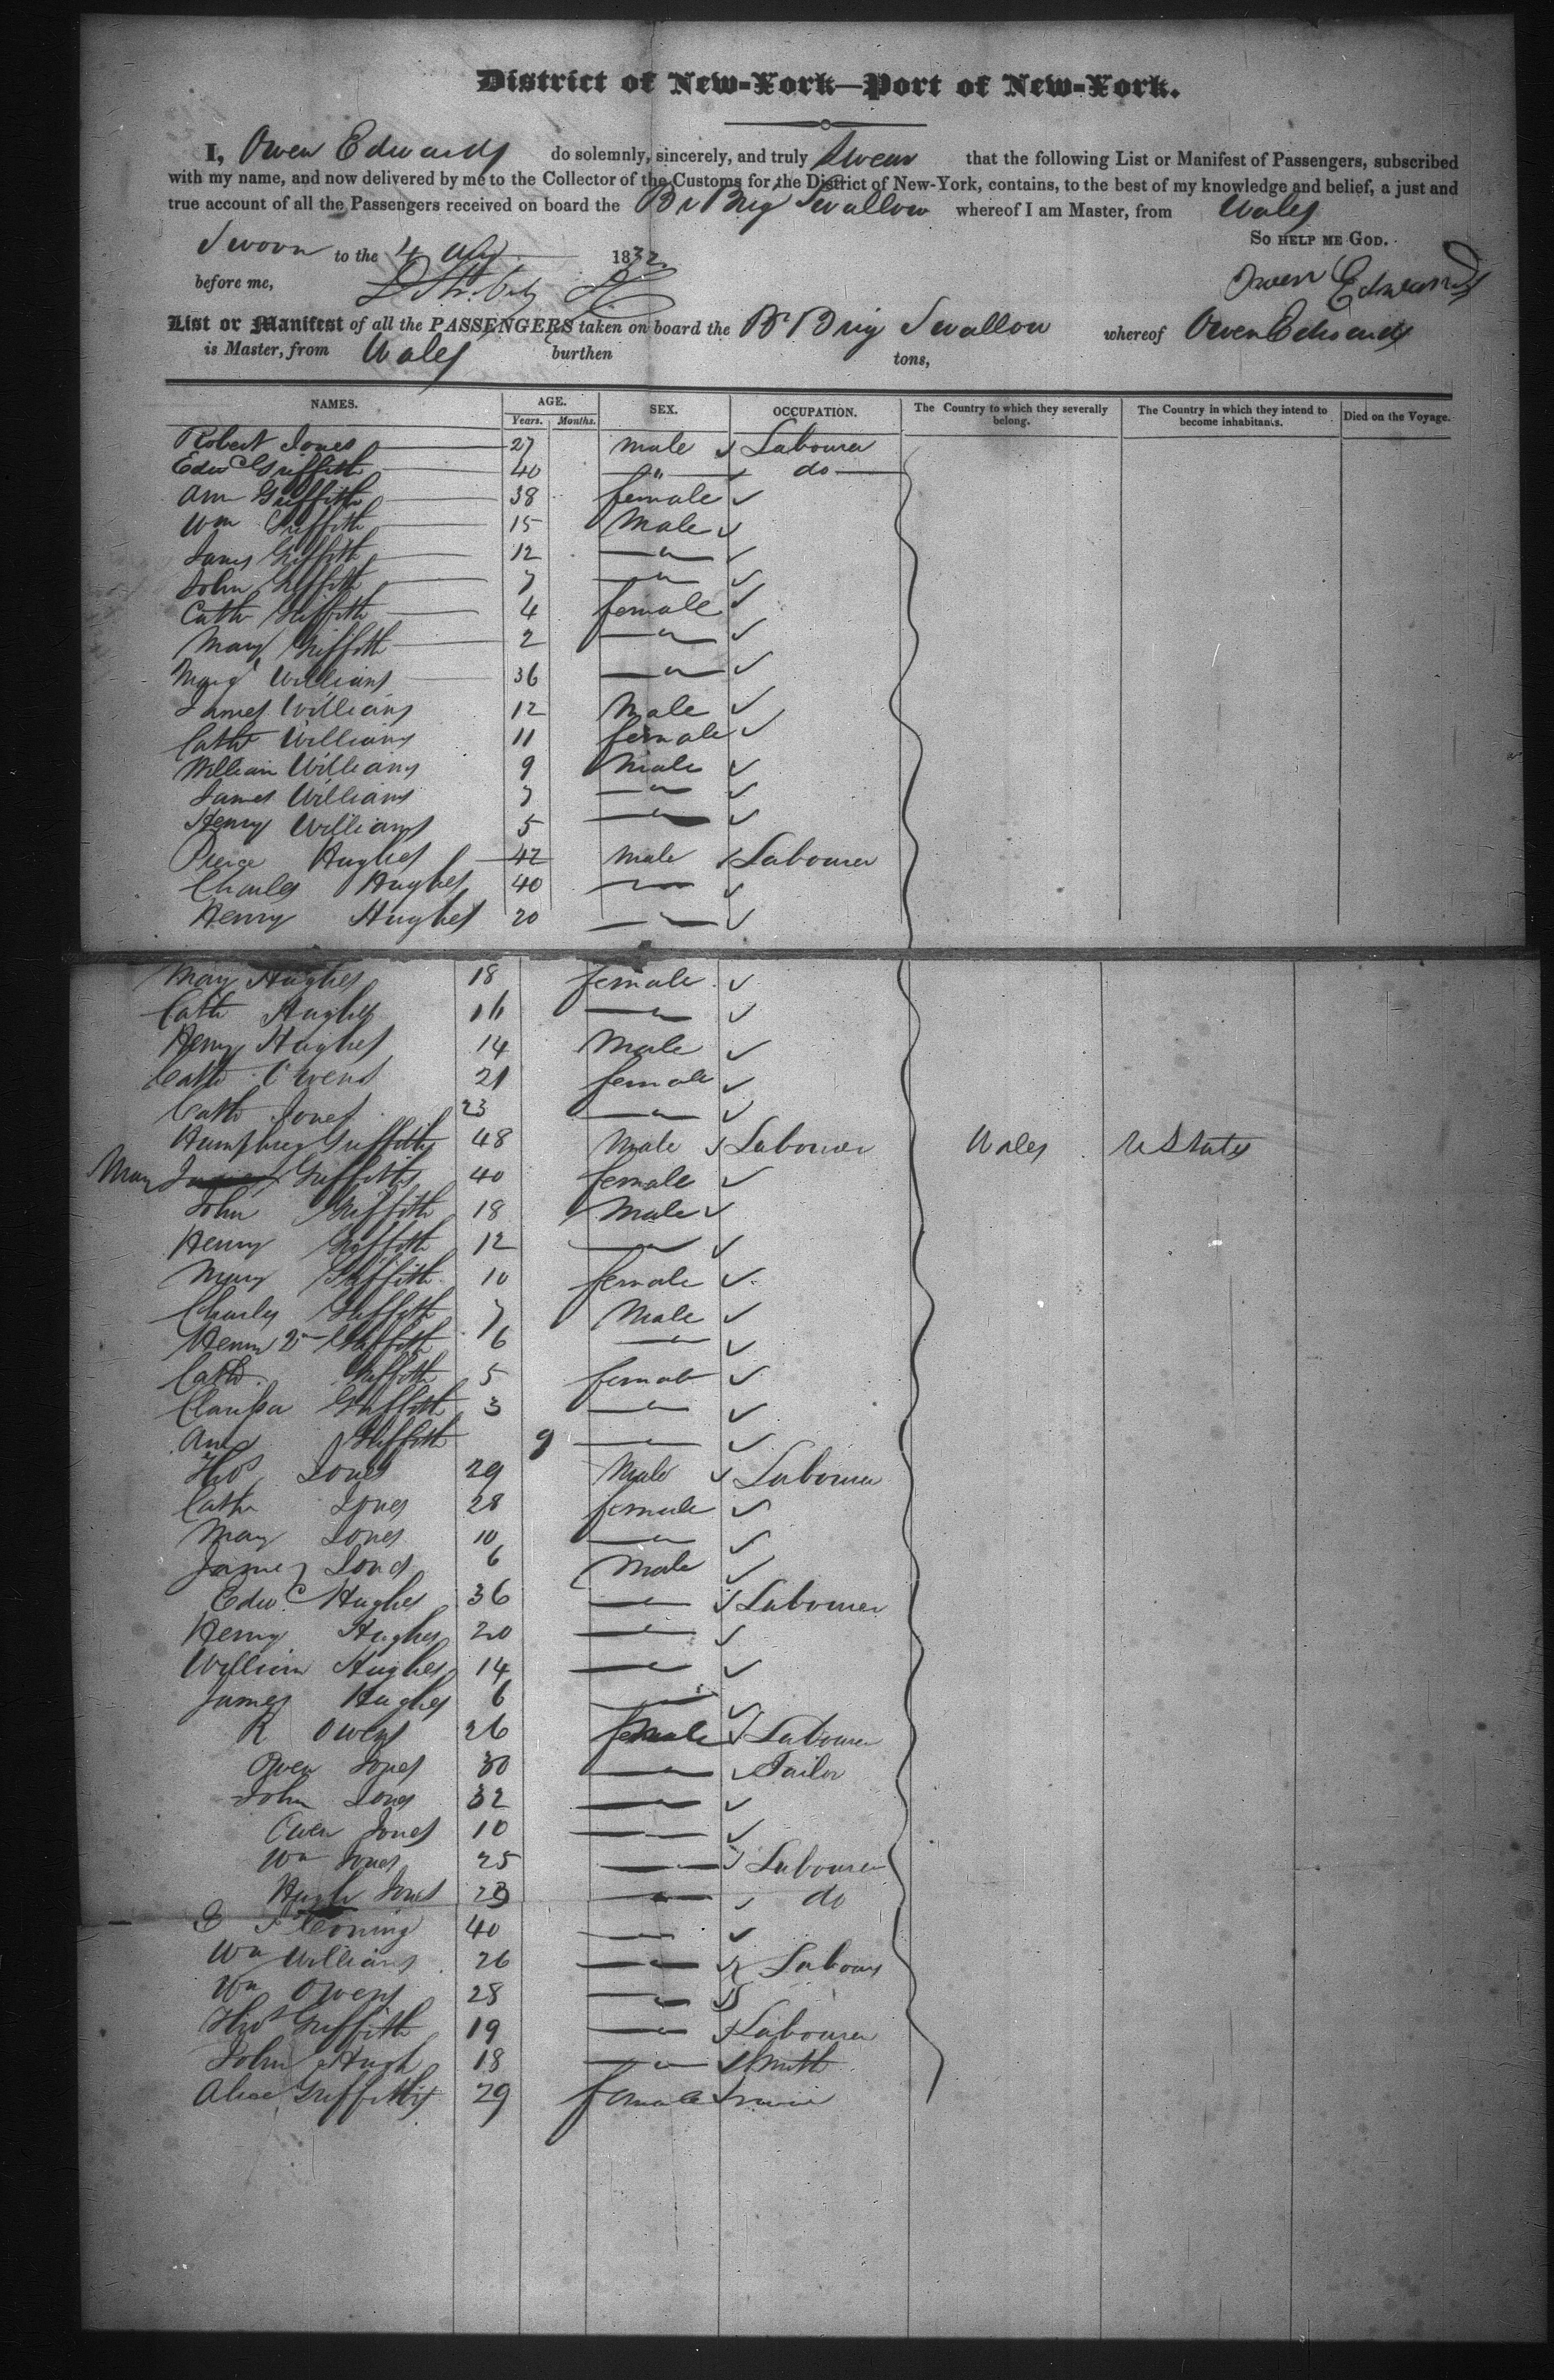 District of New-York—Port of New-York.
I, Owen Edwards do solemnly, sincerely, and truly Swear that the following List or Manifest of Passengers, subscribed
with my name, and now delivered by me to the Collector of the Customs for the District of New-York, contains, to the best of my knowledge and belief, a just and
true account of all the Passengers received on board the Br Brig Swallow whereof I am Master, from Wales
So help me God.
Sworn to the 4 Aug 1832
before me,
Owen Edwards
List or Manifest of all the PASSENGERS taken on board the Br Brig Swallow whereof Owen Edwards
is Master, from Wales burthen tons,
NAMES. AGE. SEX. OCCUPATION. The Country to which they severally belong. The Country in which they intend to become inhabitants. Died on the Voyage.
Years. Months.
Robert Jones 27 male Labourer
Edwd Griffith 40 " do
Ann Griffith 38 female
Wm Griffith 15 Male
James Griffith 12 "
John Griffith 7 "
Cath Griffith 4 female
Mary Griffith 2 "
Margt Williams 36 "
James Williams 12 Male
Cath Williams 11 female
William Williams 9 Male
James Williams 7 "
Henry Williams 5 "
Pierce Hughes 42 male Labourer
Charles Hughes 40 "
Henry Hughes 20 "
Mary Hughes 18 female
Cath Hughes 16 "
Henry Hughes 14 Male
Cath Owens 21 female
Cath Jones 23 "
Humphrey Griffiths 48 Male Labourer Wales U States
Mary Griffiths 40 female
John Griffith 18 Male
Henry Griffith 12 "
Mary Griffith 10 female
Charles Griffith 7 Male
Henry 2 Griffith 6 "
Cath Griffith 5 female
Clarissa Griffith 3 "
Ann Griffith 9 "
Thos Jones 29 Male Labourer
Cath Jones 28 female
Mary Jones 10 "
James Jones 6 Male
Edwd Hughes 36 " Labourer
Henry Hughes 20 "
William Hughes 14 "
James Hughes 6 "
R Owens 26 Male Labourer
Owen Jones 30 " Tailor
John Jones 32 "
Owen Jones 10 "
Wm Jones 25 " Labourer
Hugh Jones 23 " do
40 "
Wm Williams 26 " Labour
Wm Owens 28 "
Thos Griffith 19 " Labourer
John Hugh 18 " Smith
Alice Griffiths 29 female